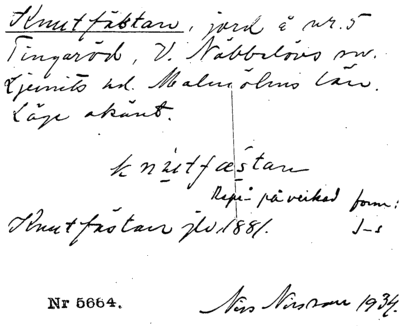 Knutfästan, jord å nr. 5
Tingaröd, V. Nöbbelövs sn.
Ljunits hd. Malmöhus län.
Läge okänt.
knutfæstan
på verkad form:
Knutfästan jb 1881. J-s
Nr 5664.
Nils Nilsson 1934.